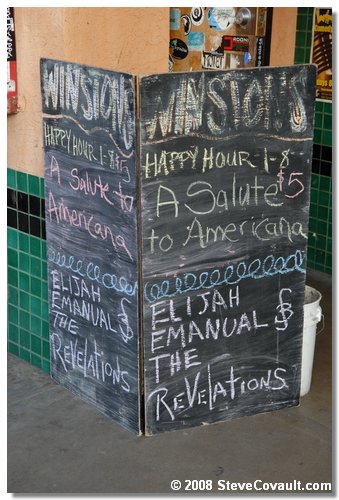 WINSTONS
HAPPY HOUR 1-8
$5
A Salute
to
Americana
ELIJAH
EMANUAL &
THE
REVELATIONS
WINSTON'S
HAPPY HOUR 1-8
$5
A Salute
to Americana
ELIJAH
EMANUAL &
THE
REVELATIONS
© 2008 SteveCovault.com